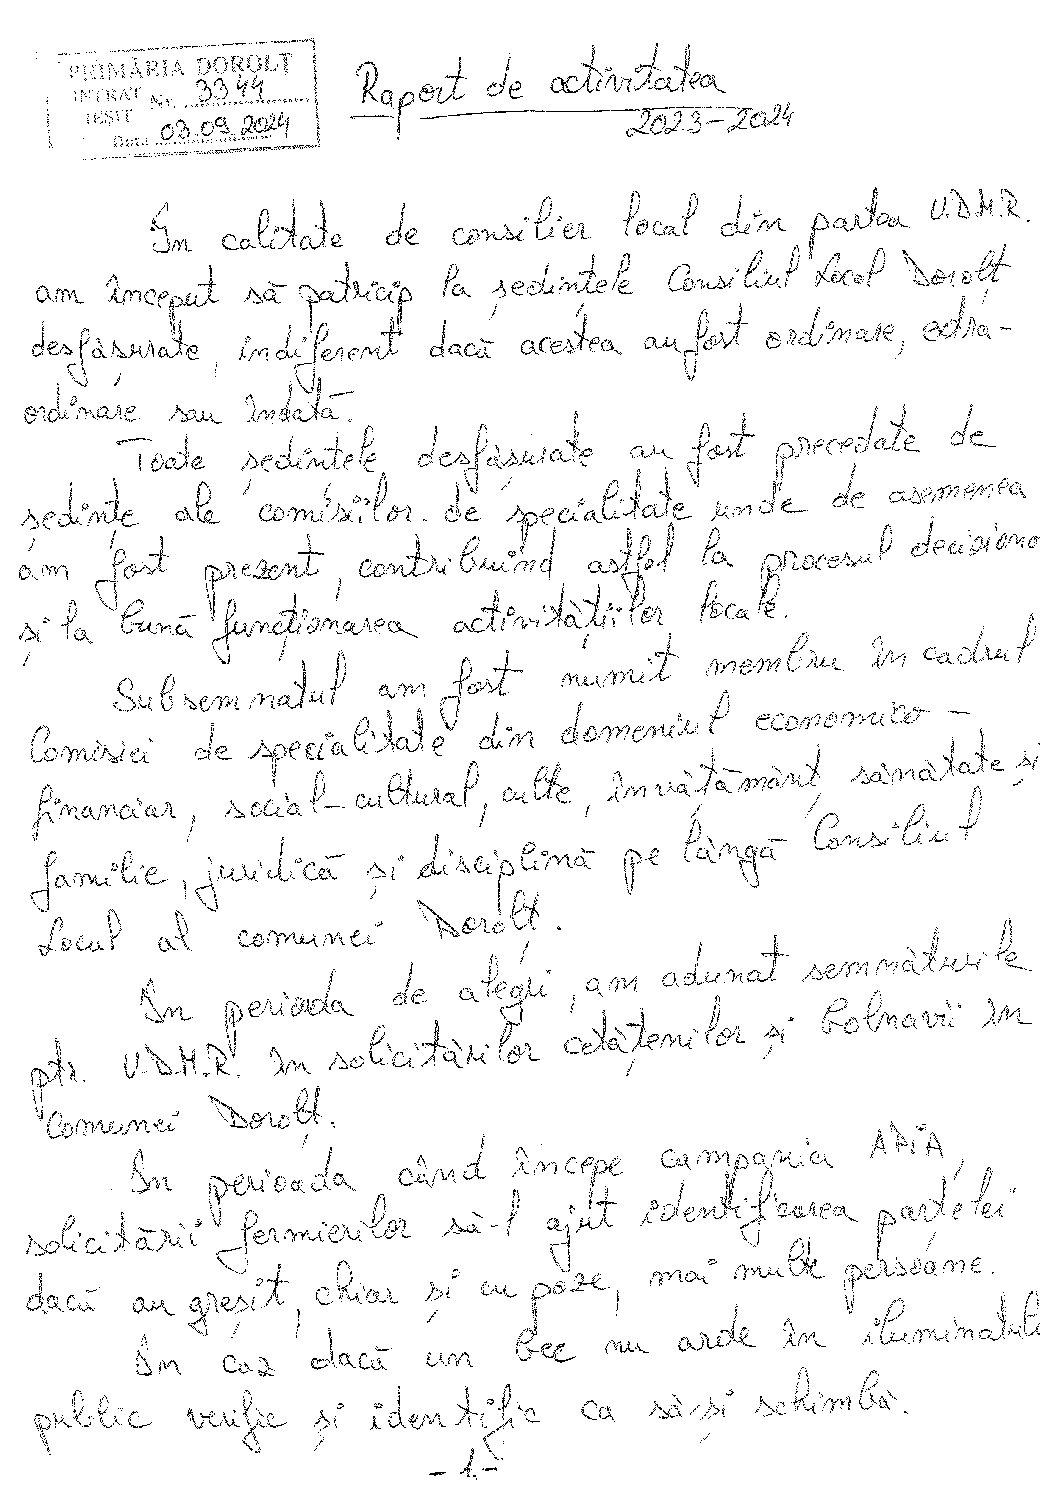 PRIMĂRIA DOROLȚ
INTRAT
IEȘIT Nr. 3344
Data 03.09.2024
Raport de activitatea
2023-2024
În calitate de consilier local din partea U.D.M.R.
am început să patricip la ședințele Consiliul Local Dorolț
desfășurate, indiferent dacă acestea au fost ordinare, extra-
ordinare sau îndată.
Toate ședințele desfășurate au fost precedate de
ședințe ale comisiilor de specialitate unde de asemenea
am fost prezent, contribuind astfel la procesul deciziona
și la bună funcționarea activitățiilor locale.
Subsemnatul am fost numit membru în cadrul
Comisiei de specialitate din domeniul economico-
financiar, social-cultural, culte, învățământ, sănătate și
familie, juridică și disciplină pe lângă Consiliul
Locul al comunei Dorolț.
În perioada de alegri, am adunat semnăturile
ptr. U.D.M.R. în solicitărilor cetățenilor și bolnavii în
Comunei Dorolț.
În perioada când începe campania APIA,
solicitării fermierilor să-l ajut identificarea parțelei
dacă au greșit, chiar și cu poze, mai multe persoane.
În caz dacă un bec nu arde în iluminatul
public verific și identific ca să-și schimbă.
-1-